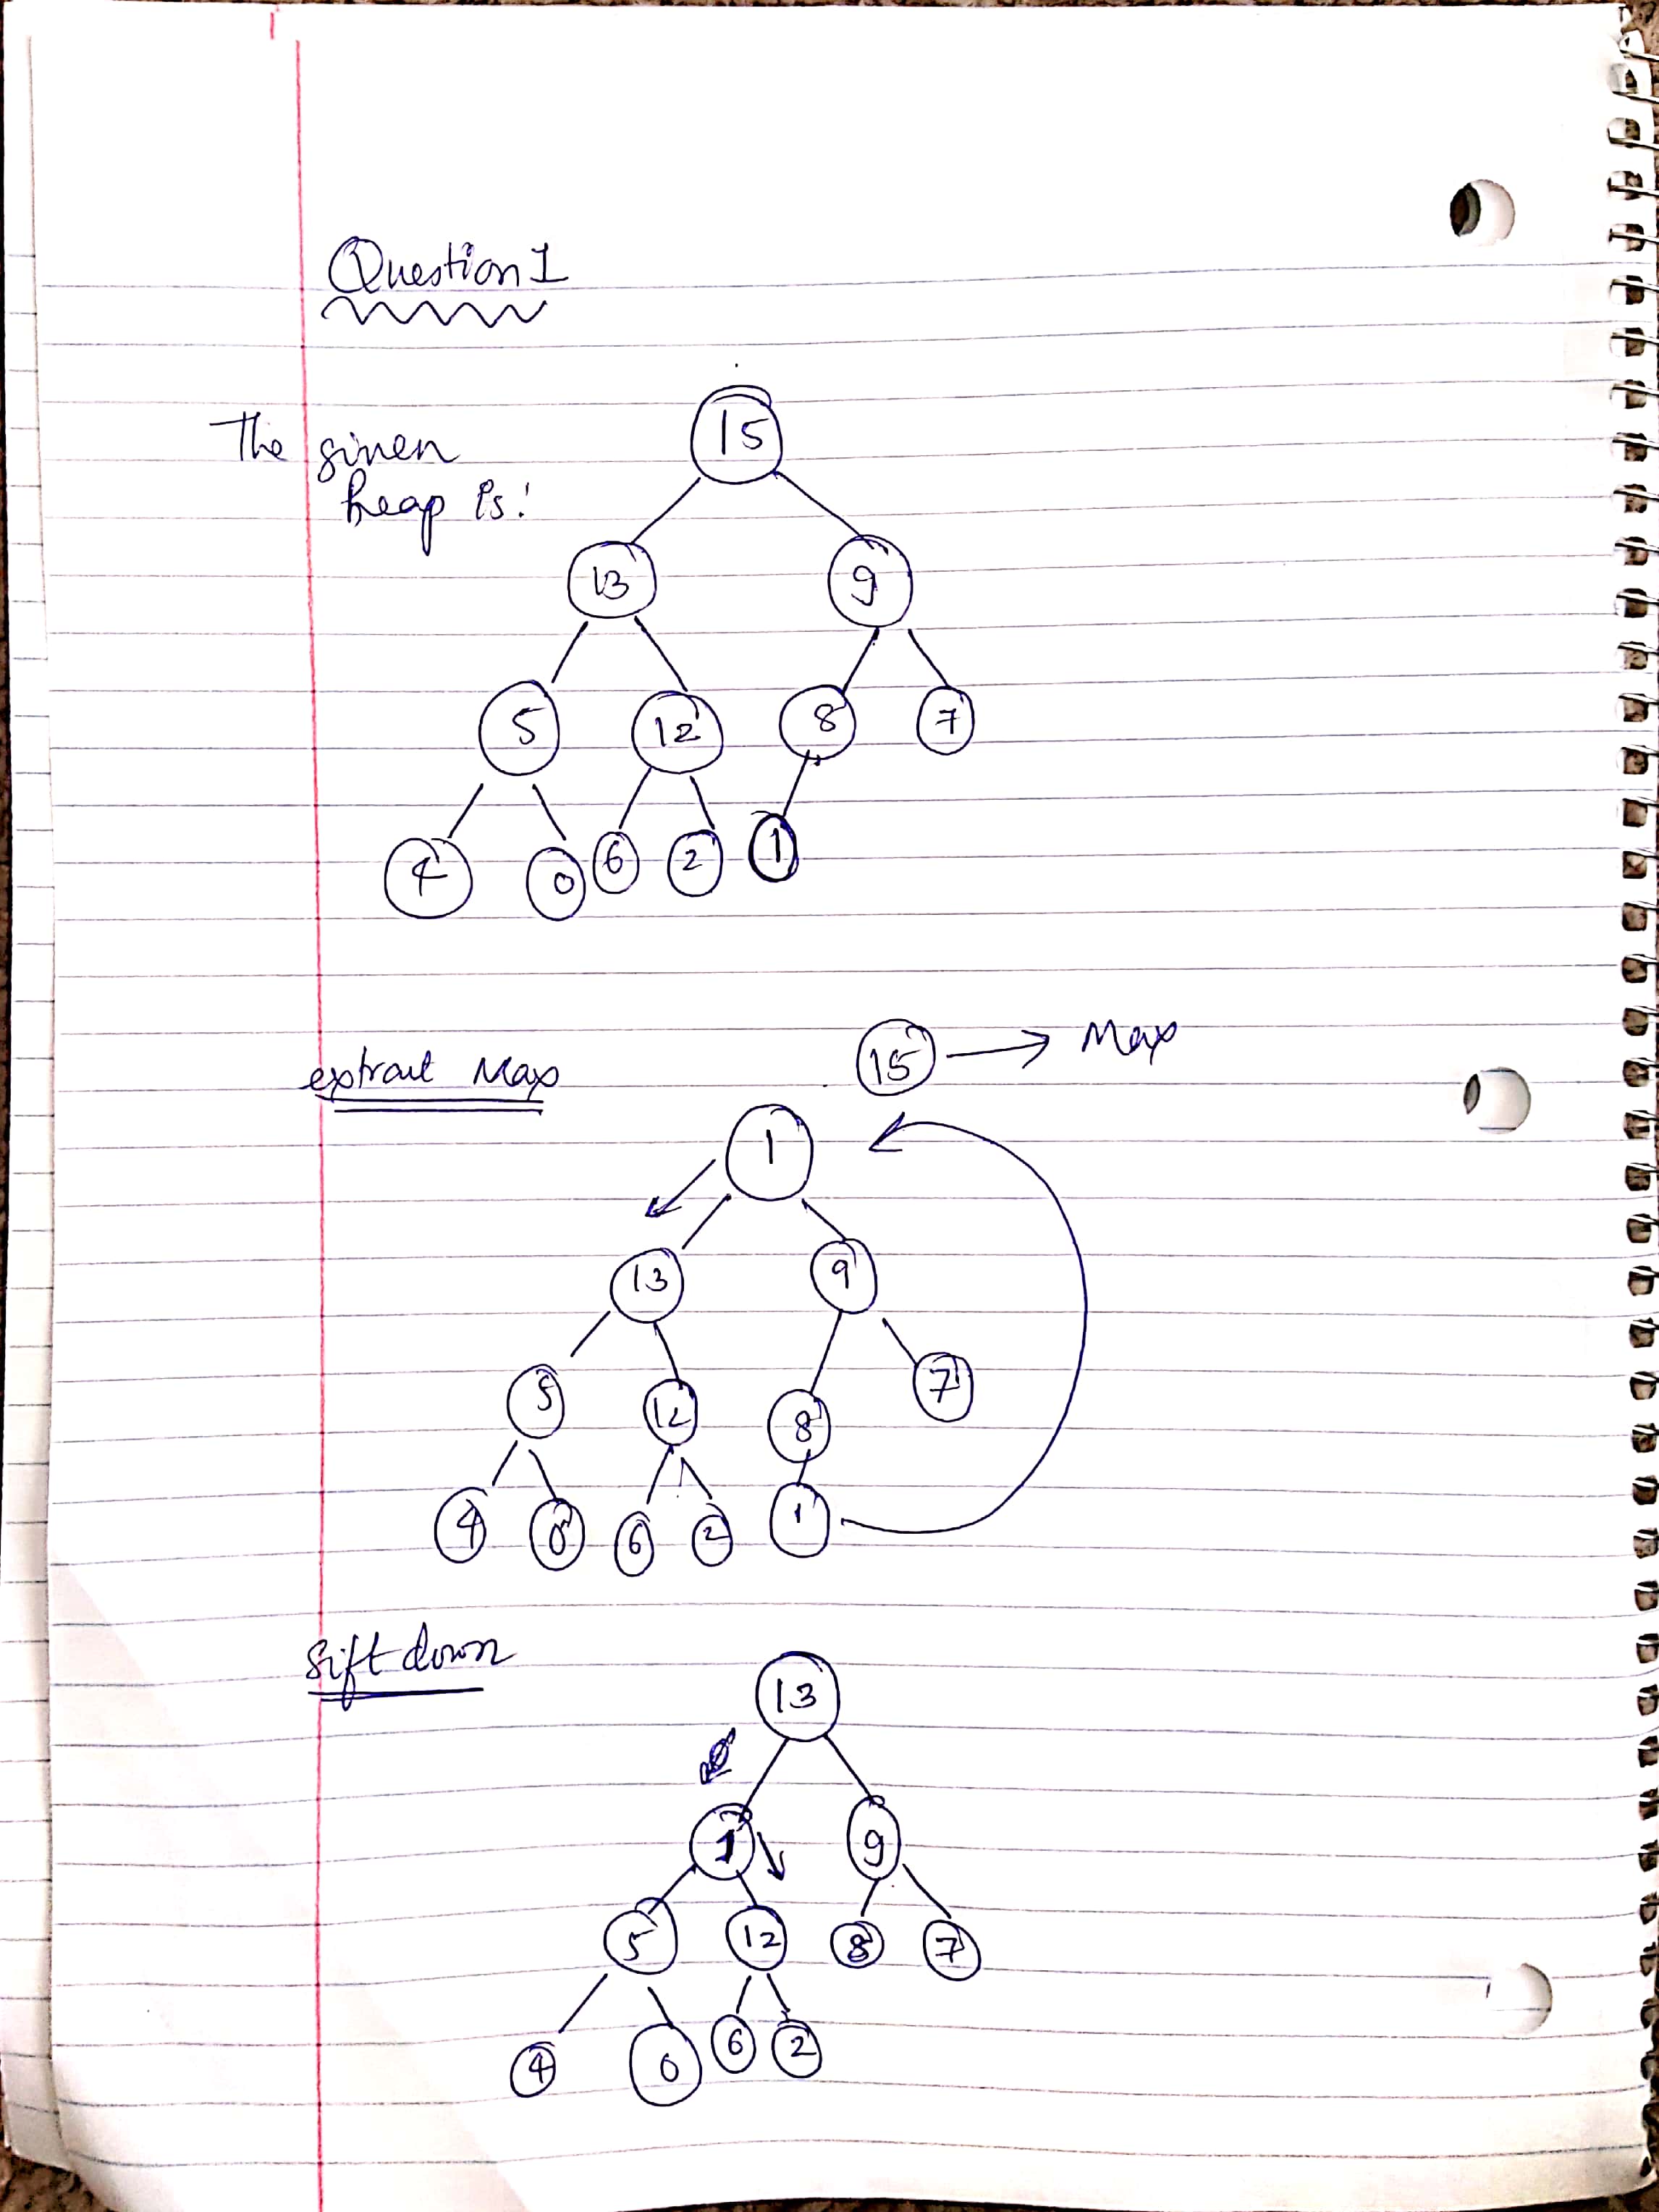 Question 1
The given
heap is:
15
13 9
5 12 8 7
4 0 6 2 1
extract Max
15 → Max
1
13 9
5 12 8 7
4 0 6 2 1
sift down
13
1 9
5 12 8 7
4 0 6 2